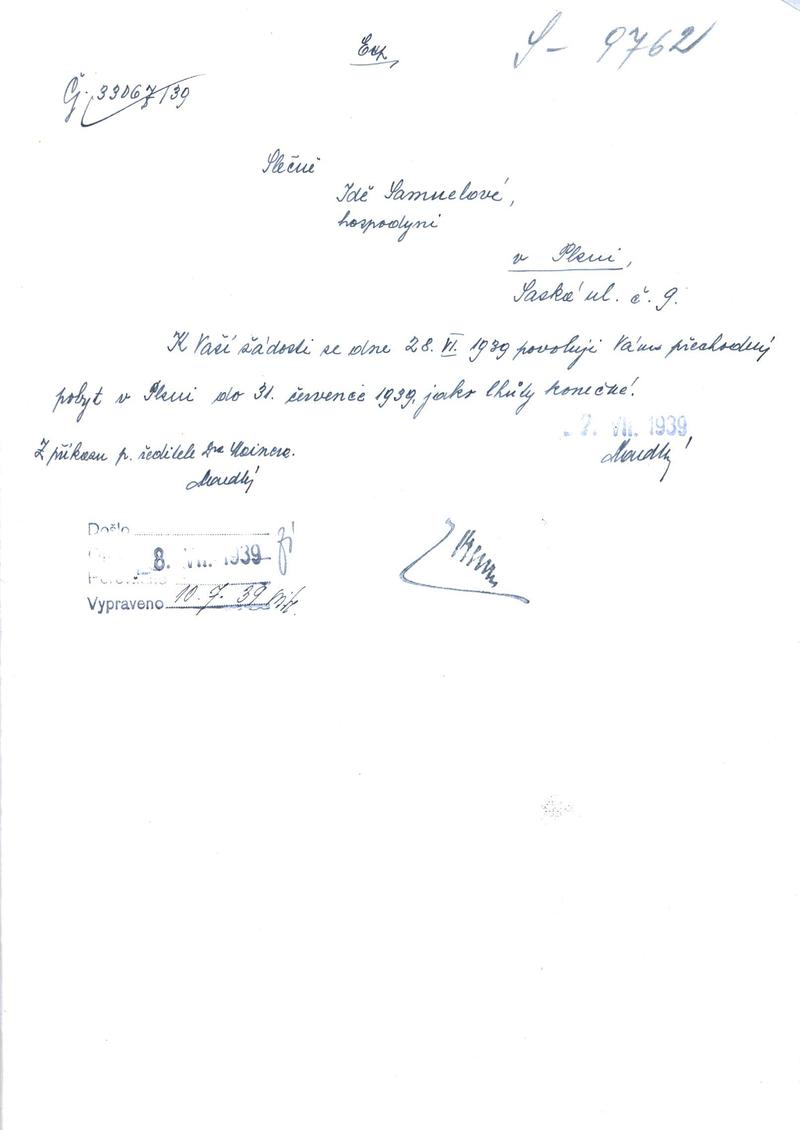 Exp.
S- 9762
Č. 33067/39
Slečně
Idě Samuelové,
hospodyni
v Plzni,
Saská ul. č. 9.
K Vaší žádosti ze dne 28. VI. 1939 povoluji Vám přechodný
pobyt v Plzni do 31. července 1939, jako lhůty konečné.
-7. VII. 1939
Z příkazu p. ředitele Dra
Došlo
8. VII. 1939
Vypraveno 10. 7. 39